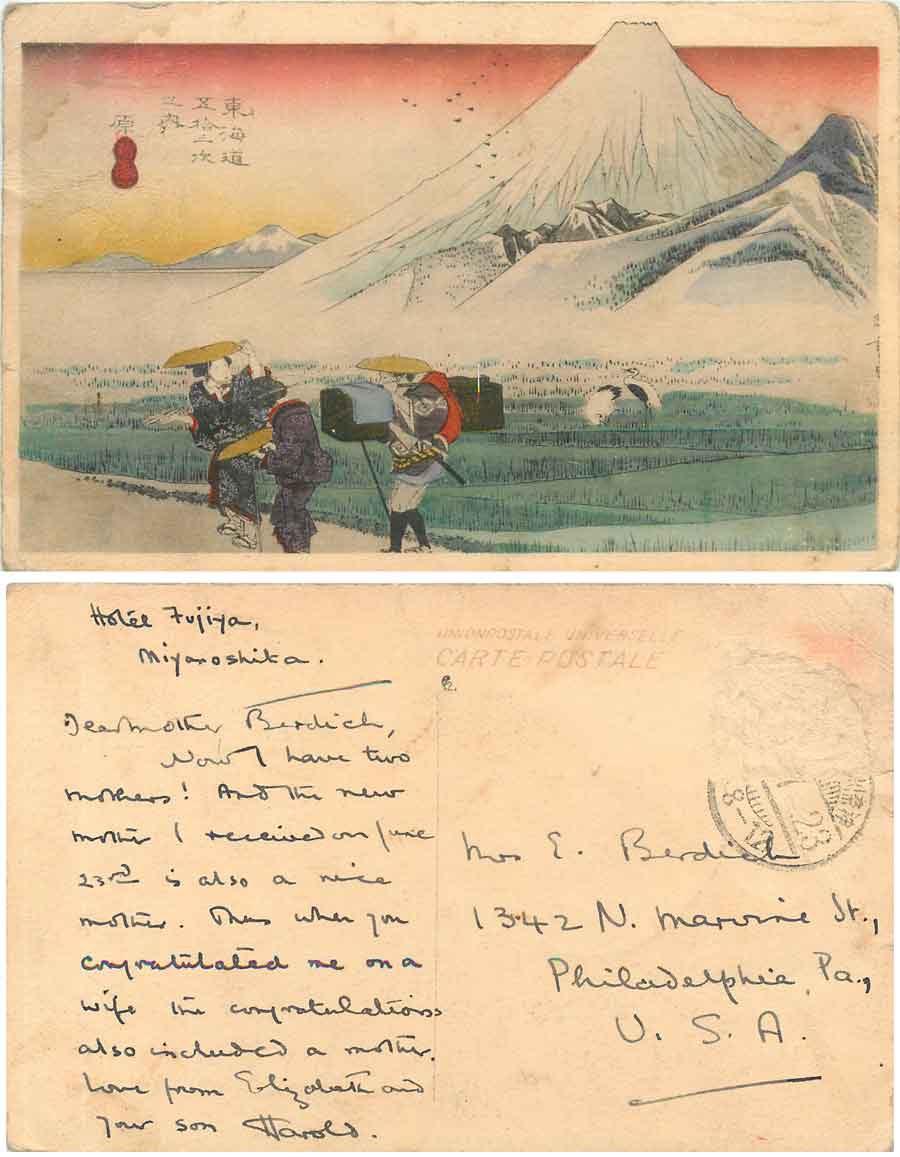 東海道
五拾三次
之内
原
Hotel Fujiya,
Miyanoshita.
Dear Mother Berdich,
Now I have two
mothers! And the new
mother I received on June
23rd is also a nice
mother. Thus when you
congratulated me on a
wife the congratulations
also included a mother.
Love from Elizabeth and
your son Harold.
UNION POSTALE UNIVERSELLE
CARTE POSTALE
Mrs E. Berdich
1342 N. Marvine St.,
Philadelphia, Pa.,
U. S. A.